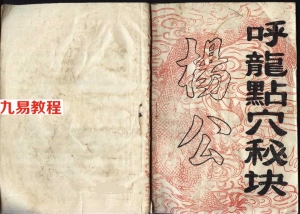 呼龍點穴秘块
楊公
九易教程